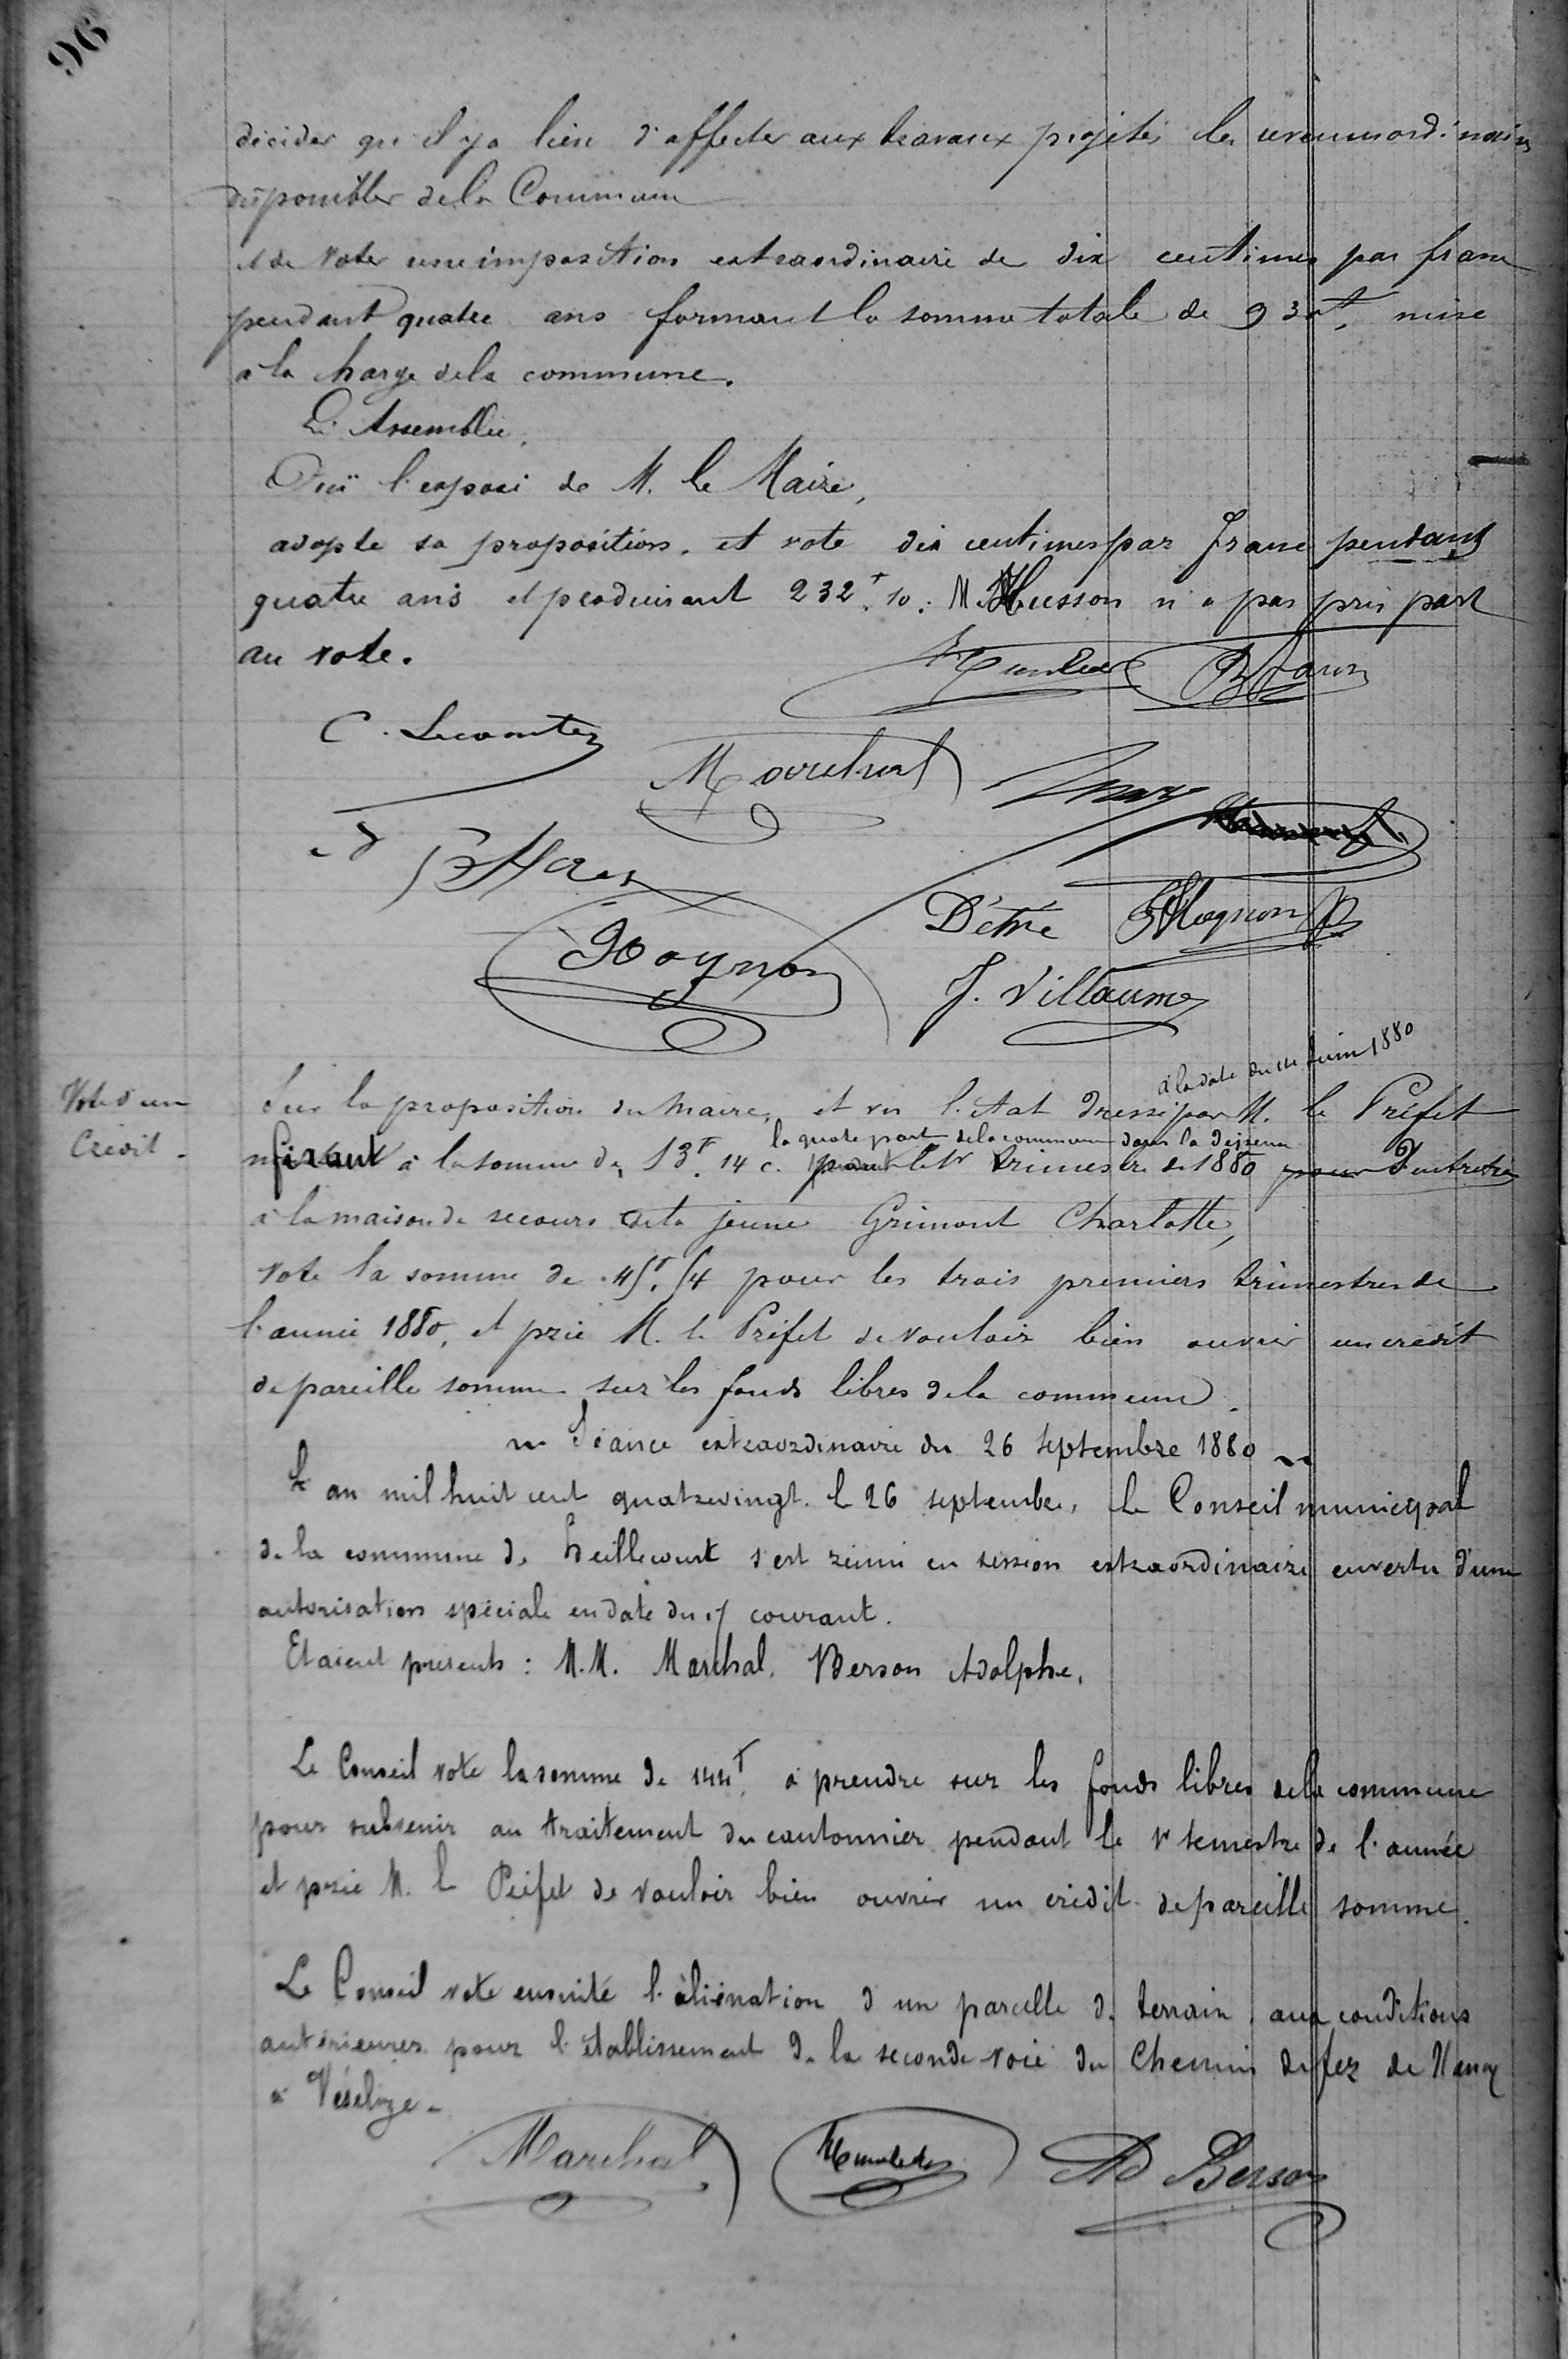 96
décider qu'il y a lieu d'affecter aux travaux projetés les revenus ordinaires
disponibles de la Commune
et de voter une imposition extraordinaire de dix centimes par franc
pendant quatre ans formant la somme totale de 930f, mise
à la charge de la commune.
L'Assemblée,
Ouï l'exposé de M. le Maire,
adopte sa proposition, et vote dix centimes par franc pendant
quatre ans et produisant 232f.10. M. Husson n'a pas pris part
au vote.
C. Lecomte
Marchal
Hoynon
D'étré
J. Villaume
Vote d'un
Crédit.
à la date du 14 Juin 1880
Sur la proposition du Maire, et vu l'état dressé par M. le Préfet
la quote part de la commune dans la dépense
fixant à la somme de 13f.14c. pour le 1r trimestre de 1880 pour d'entretien
à la maison de secours de la jeune Grimont Charlotte,
vote la somme de 45f.54 pour les trois premiers trimestres de
l'année 1880, et prie M. le Préfet de vouloir bien ouvrir un crédit
de pareille somme sur les fonds libres de la commune.
Séance extraordinaire du 26 septembre 1880
L'an mil huit cent quatrevingt, le 26 septembre, le Conseil municipal
de la commune de Heillecourt s'est réuni en session extraordinaire en vertu d'une
autorisation spéciale en date du 17 courant.
Etaient présents : M.M. Marchal, Berson Adolphe,
Le Conseil vote la somme de 144f. à prendre sur les fonds libres de la commune
pour subvenir au traitement du cantonnier pendant le 1r semestre de l'année
et prie M. le Préfet de vouloir bien ouvrir un crédit de pareille somme.
Le Conseil vote ensuite l'aliénation d'un parcelle de terrain, aux conditions
antérieures pour l'établissement de la seconde voie du Chemin de fer de Nancy
à Vézelize.
Marchal
Ad Berson